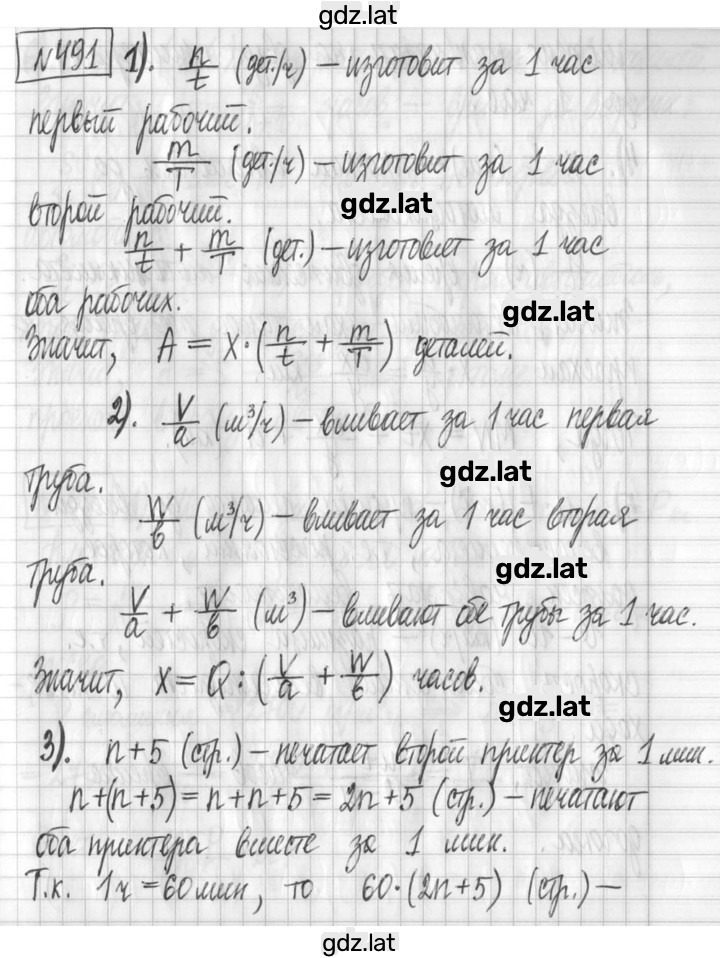 gdz.lat
№491 1). n/t (дет./ч) – изготовит за 1 час
первый рабочий.
m/T (дет./ч) – изготовит за 1 час
второй рабочий.
gdz.lat
n/t + m/T (дет.) – изготовят за 1 час
оба рабочих.
gdz.lat
Значит, A = x·(n/t + m/T) деталей.
2). V/a (м³/ч) – вливает за 1 час первая
труба.
gdz.lat
W/b (м³/ч) – вливает за 1 час вторая
труба.
gdz.lat
V/a + W/b (м³) – вливают обе трубы за 1 час.
Значит, x = Q : (V/a + W/b) часов.
gdz.lat
3). n+5 (стр.) – печатает второй принтер за 1 мин.
n+(n+5) = n+n+5 = 2n+5 (стр.) – печатают
оба принтера вместе за 1 мин.
Т.к. 1ч = 60 мин, то 60·(2n+5) (стр.) –
gdz.lat